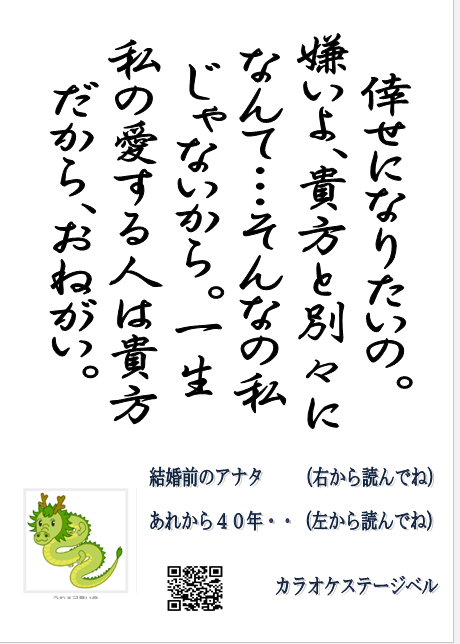 倖せになりたいの。
嫌いよ、貴方と別々に
なんて…そんなの私
じゃないから。一生
私の愛する人は貴方
だから、おねがい。
結婚前のアナタ (右から読んでね)
あれから４０年・・ (左から読んでね)
カラオケステージベル